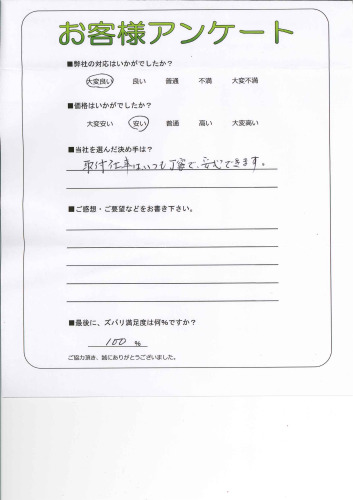 お客様アンケート
■弊社の対応はいかがでしたか?
大変良い 良い 普通 不満 大変不満
■価格はいかがでしたか?
大変安い 安い 普通 高い 大変高い
■当社を選んだ決め手は?
取付仕事はいつも丁寧で、安心できます。
■ご感想・ご要望などをお書き下さい。
■最後に、ズバリ満足度は何%ですか?
100 %
ご協力頂き、誠にありがとうございました。